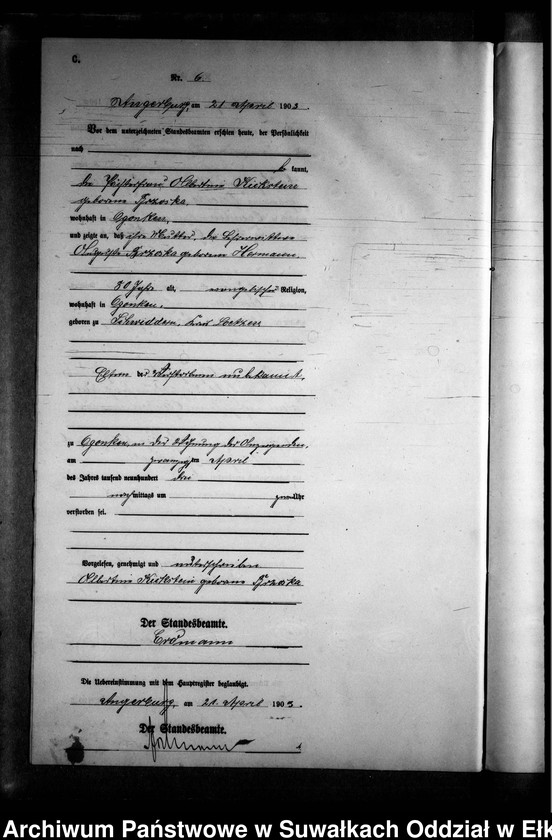 C.
Nr. 6
Angerburg, am 21 April 1903.
Vor dem unterzeichneten Standesbeamten erschien heute, der Persönlichkeit
nach
kannt,
die Albertine
geborene
wohnhaft in Ogonken,
und zeigte an, daß ihre Mutter, die
geborene Hermann
80 Jahr alt, evangelischer Religion,
wohnhaft in Ogonken,
geboren zu Schwiddern, Kreis Loetzen
Eltern der Verstorbenen unbekannt.
zu Ogonken, in der Wohnung der Anzeigenden,
am zwanzigsten April
des Jahres tausend neunhundert drei
nachmittags um Uhr
verstorben sei.
Vorgelesen, genehmigt und unterschrieben
Albertine geborene
Der Standesbeamte.
Erdmann
Die Uebereinstimmung mit dem Hauptregister beglaubigt.
Angerburg, am 21 April 1903.
Der Standesbeamte.
Archiwum Państwowe w Suwałkach Oddział w Ełk